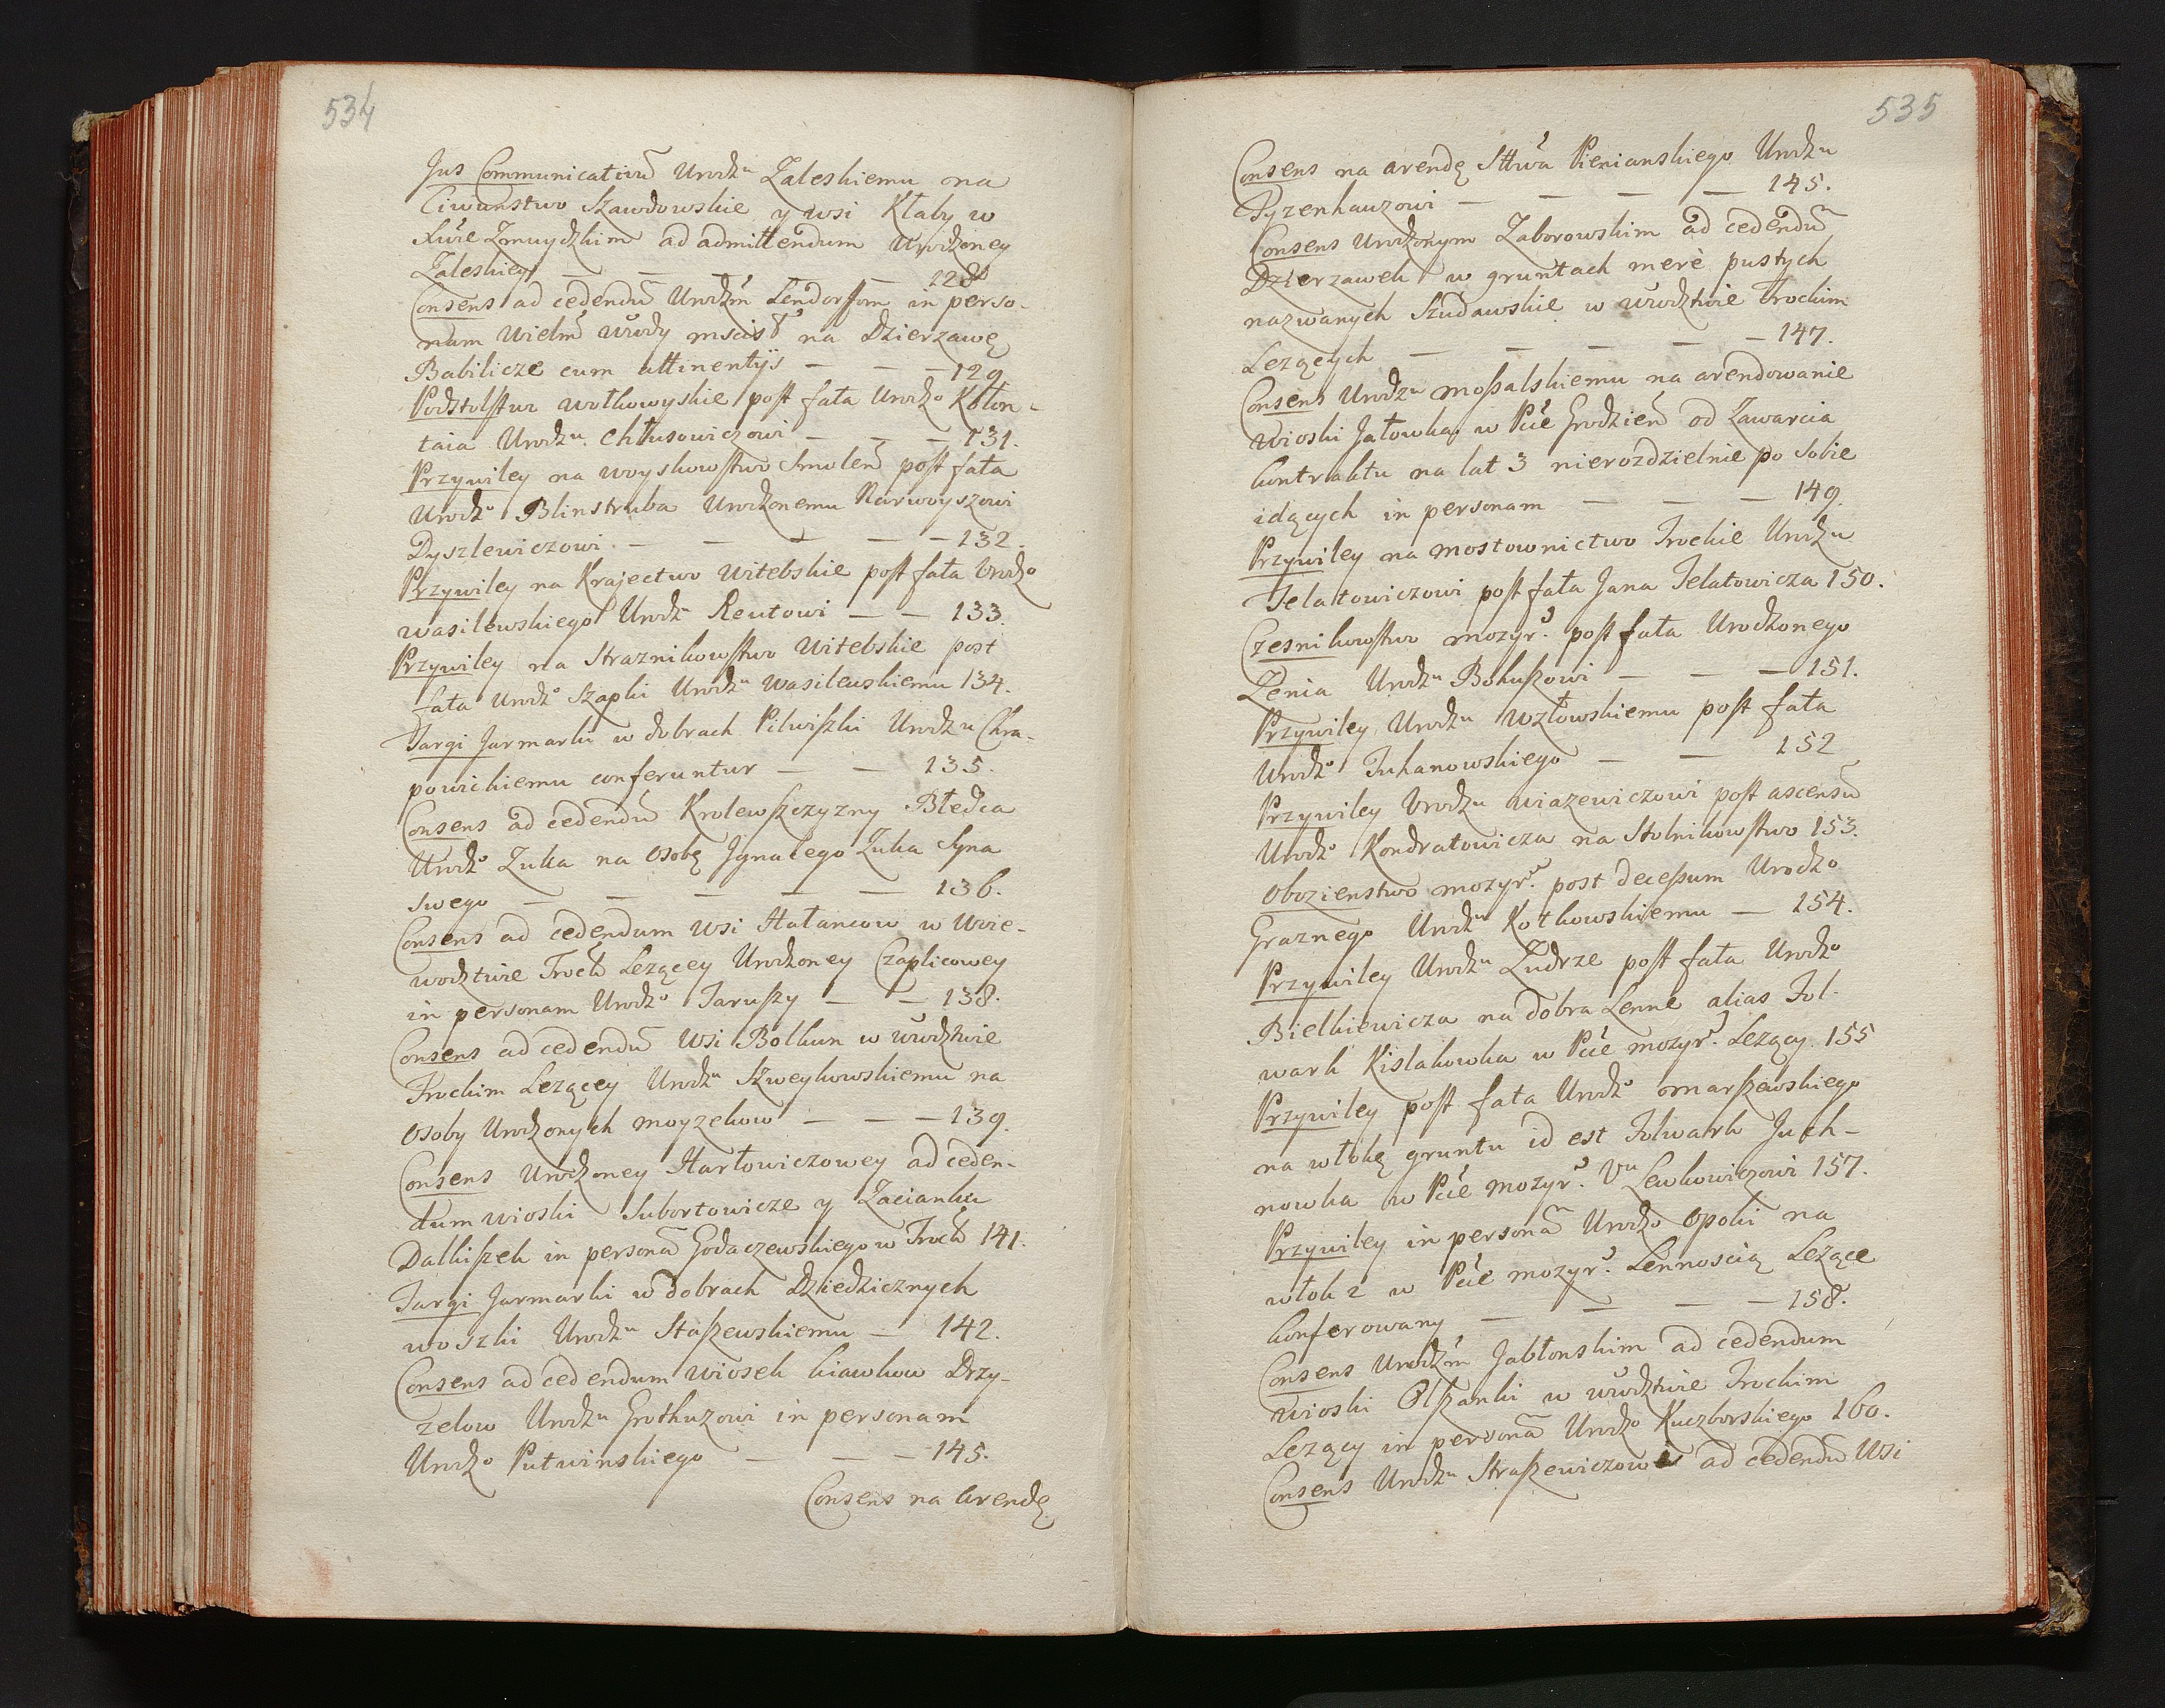 534
Jus Communicativũ Urodzu Zaleskiemu na
Ciwunstwo Szawdowskie y wsi Kłaby w
Xtwie Zmuydzkim ad admittendum Urodzoney
Zaleskiey — — — — 128
Consens ad cedendũ Urodzm Lendorffom in perso-
nam Wielm wwody mscisł na Dzierzawę
Babilicze cum attinentijs — — — 129
Podstolstwo wołkowyskie post fata Urodzo Kołon-
taia Urodzu Chłusowiczowi — — — 131.
Przywiley na woyskowstwo Smoleń post fata
Urodzo Blinstruba Urodzonemu Narwoyszowi
Dyszlewiczowi. — — — — 132.
Przywiley na Krajectwo Witebskie post fata Urodzo
wasilewskiego Urodzu Reutowi — — 133.
Przywiley na Straznikowstwo Witebskie post
fata Urodzo Szapki Urodzu Wasilewskiemu 134.
Targi Jarmarki w dobrach Pilwiszki Urodzu Chra-
powickiemu conferuntur — — 135.
Consens ad cedendũ Krolewszczyzny Błedca
Urodzo Zuka na Osobę Jgnacego Zuka Syna
swego — — — — — 136.
Consens ad cedendum Wsi Hatancow w Woie-
wodztwie Trock Lezącey Urodzoney Czaplicowey
in personam Urodzo Taruszy — — 138.
Consens ad cedendũ Wsi Bolkun w wwodztwie
Trockim Lezącey Urodzu Szweykowskiemu na
Osoby Urodzonych moyzekow — — — 139.
Consens Urodzoney Hartowiczowey ad ceden-
dum wioski Subortowicze y Zacianku
Dalkiszek in personã Godaczewskiego w Trock 141.
Targi Jarmarki w dobrach Dziedzicznych
woszki Urodzu Staszewskiemu — 142.
Consens ad cedendum Wiosek kiawkow Drzy-
zelow Urodzu Grothuzowi in personam
Urodzo Putwinskiego — — — 145.
Consens na Arendę
535
Consens na arendę Sttwa Pienianskiego Urodzu
Tyzenhauzowi — — — — 145.
Consens Urodzonym Zaborowskim ad cedendũ
Dzierzawek w gruntach merè pustych
nazwanych Szudawskie w wwodztwie Trockim
Lezących — — — — — 147.
Consens Urodzu mossalskiemu na arendowanie
Wioski Jałowka w Pcie Grodzień od Zawarcia
kontraktu na lat 3 nierozdzielnie po Sobie
idących in personam — — — 149.
Przywiley na mostownictwo Trockie Urodzu
Jelatowiczowi post fata Jana Jelatowicza 150.
Czesnikowstwo mozyr. post fata Urodzonego
Zenia Urodzu Bohuszowi — — — 151.
Przywiley Urodzu Wzłowskiemu post fata
Urodzo Tuhanowskiego — — 152
Przywiley Urodzu wiazewiczowi post ascensũ
Urodzo Kondratowicza na Stolnikowstwo 153.
Obozienstwo mozyr. post decessum Urodzo
Graznego Urodzu Kotkowskiemu — 154.
Przywiley Urodzu Zudrze post fata Urodzo
Bielkiewicza na dobra Lenne alias Fol-
wark Kislakowka w Pcie mozyr. Lezący. 155
Przywiley post fata Urodzo marszewskiego
na włokę gruntu id est Folwark Juch-
nowka w Pcie mozyr. Uu Lewkowiczowi 157.
Przywiley in personã Urodzo Opoki na
włok 2 w Pcie mozyr. Lennoscią Leżące
konferowany — — — — 158.
Consens Urodzm Jabłonskim ad cedendum
wioski Olszanki w wwodztwie Trockim
Lezący in personã Urodzo Kuczborskiego 160.
Consens Urodzu Straszewiczowi ad cedendũ Wsi